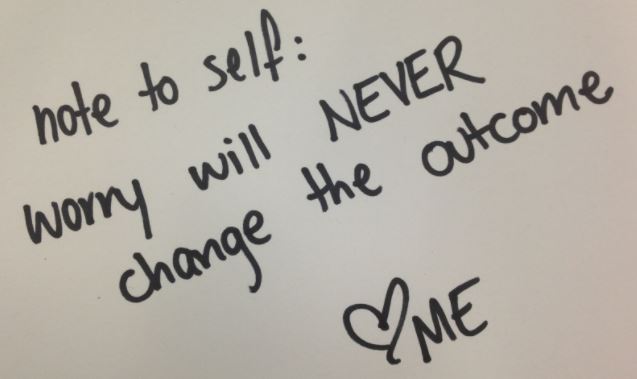 note to self:
worry will NEVER
change the outcome
♡ ME